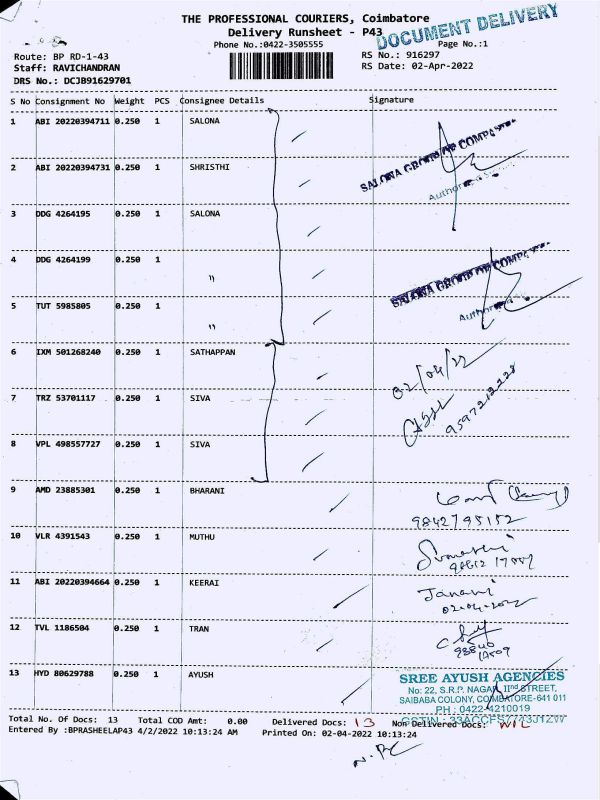 THE PROFESSIONAL COURIERS, Coimbatore
Delivery Runsheet - P43
DOCUMENT DELIVERY
Phone No.:0422-3505555
Page No.:1
Route: BP RD-1-43
RS No.: 916297
Staff: RAVICHANDRAN
RS Date: 02-Apr-2022
DRS No.: DCJB91629701
S No Consignment No Weight PCS Consignee Details Signature
1 ABI 20220394711 0.250 1 SALONA
SALONA GROUP OF COMPA
2 ABI 20220394731 0.250 1 SHRISTHI
3 DDG 4264195 0.250 1 SALONA
4 DDG 4264199 0.250 1 "
SALONA GROUP OF COMPA
5 TUT 5985805 0.250 1 "
6 IXM 501268240 0.250 1 SATHAPPAN
02/04/22
7 TRZ 53701117 0.250 1 SIVA
8 VPL 498557727 0.250 1 SIVA
9 AMD 23885301 0.250 1 BHARANI
9842795152
10 VLR 4391543 0.250 1 MUTHU
11 ABI 20220394664 0.250 1 KEERAI
Janani
02-04-2022
12 TVL 1186504 0.250 1 TRAN
13 HYD 80629788 0.250 1 AYUSH
SREE AYUSH AGENCIES
No: 22, S.R.P. NAGAR, IInd STREET,
SAIBABA COLONY, COIMBATORE-641 011
PH : 0422-4210019
GSTIN : 33ACCFS7743J1ZW
Total No. Of Docs: 13 Total COD Amt: 0.00 Delivered Docs: 13 Non Delivered Docs: NIL
Entered By :BPRASHEELAP43 4/2/2022 10:13:24 AM Printed On: 02-04-2022 10:13:24